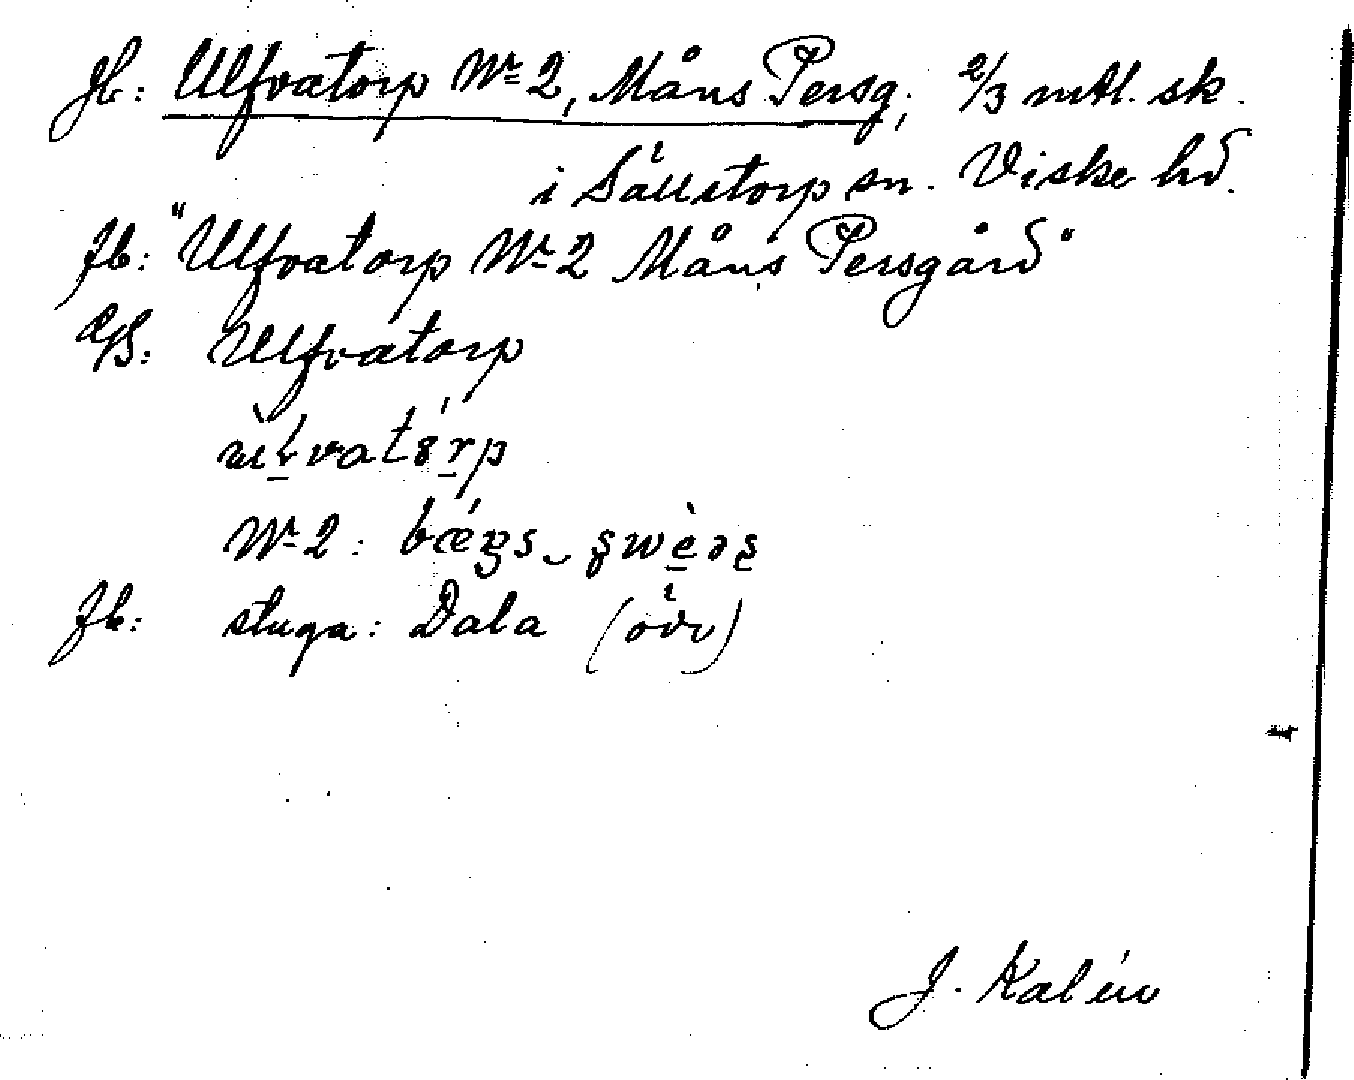 Jb: Ulfvatorp Nr 2, Måns Persg; 2/3 mtl. sk.
i Sällstorp sn. Viske hd.
Jb: "Ulfvatorp Nr 2 Måns Persgård"
Ulfvatorp
Nr 2:
Jb: stuga: Dala (öde)
J. Kalén